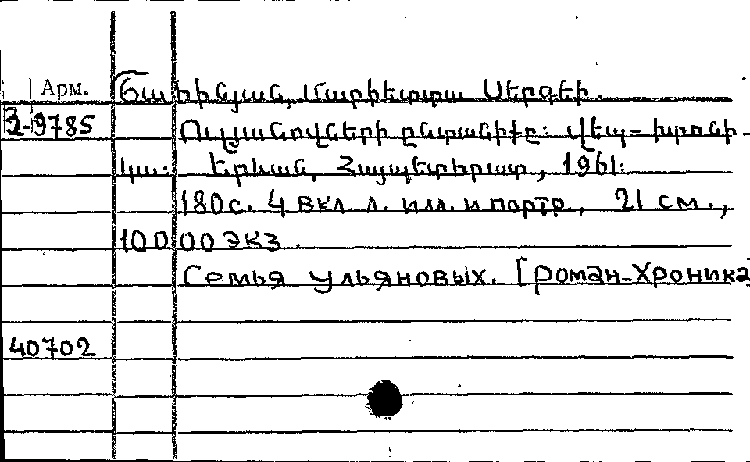 Арм. Շահինյան, Մարիետտա Սերգեի.
3-9785 Ուլյանովների ընտանիքը: Վեպ-խրոնի-
կա: Երևան, Հայպետհրատ, 1961:
180 с. 4 вкл. л. илл. и портр., 21 см.,
10000 экз.
Семья Ульяновых. [роман-хроника
40702